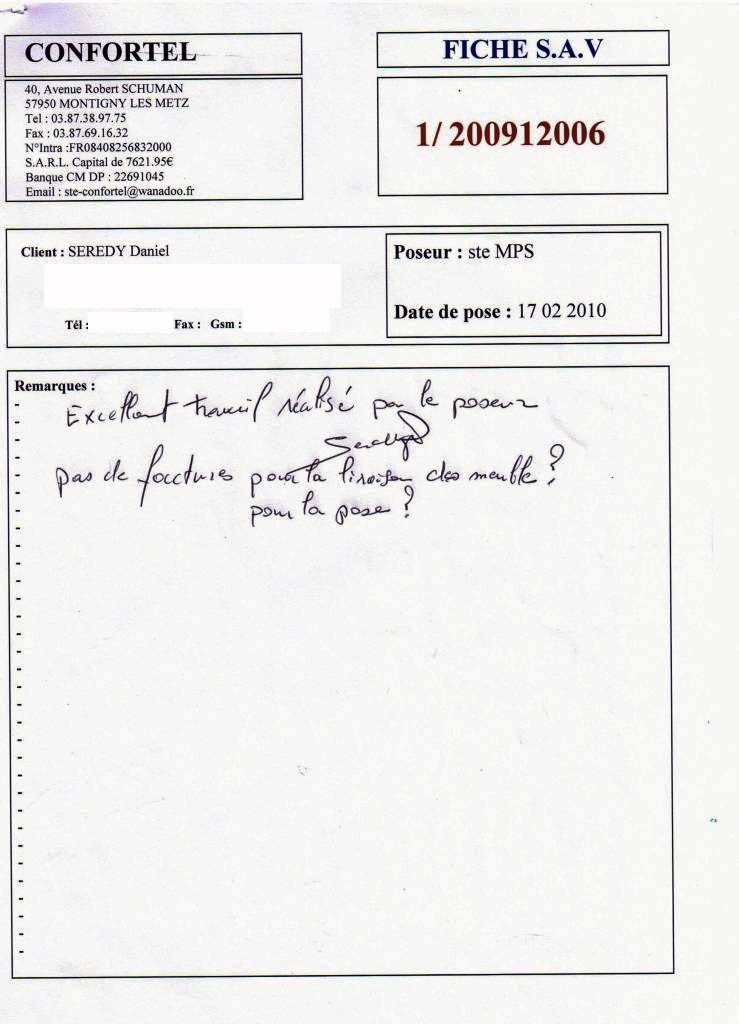 CONFORTEL
40, Avenue Robert SCHUMAN
57950 MONTIGNY LES METZ
Tel : 03.87.38.97.75
Fax : 03.87.69.16.32
N°Intra :FR08408256832000
S.A.R.L. Capital de 7621.95€
Banque CM DP : 22691045
Email : ste-confortel@wanadoo.fr
FICHE S.A.V
1/ 200912006
Client : SEREDY Daniel
Tél : Fax : Gsm :
Poseur : ste MPS
Date de pose : 17 02 2010
Remarques :
Excellent travail réalisé par le poseur
Seredy
pas de factures pour la livraison des meuble ?
pour la pose ?